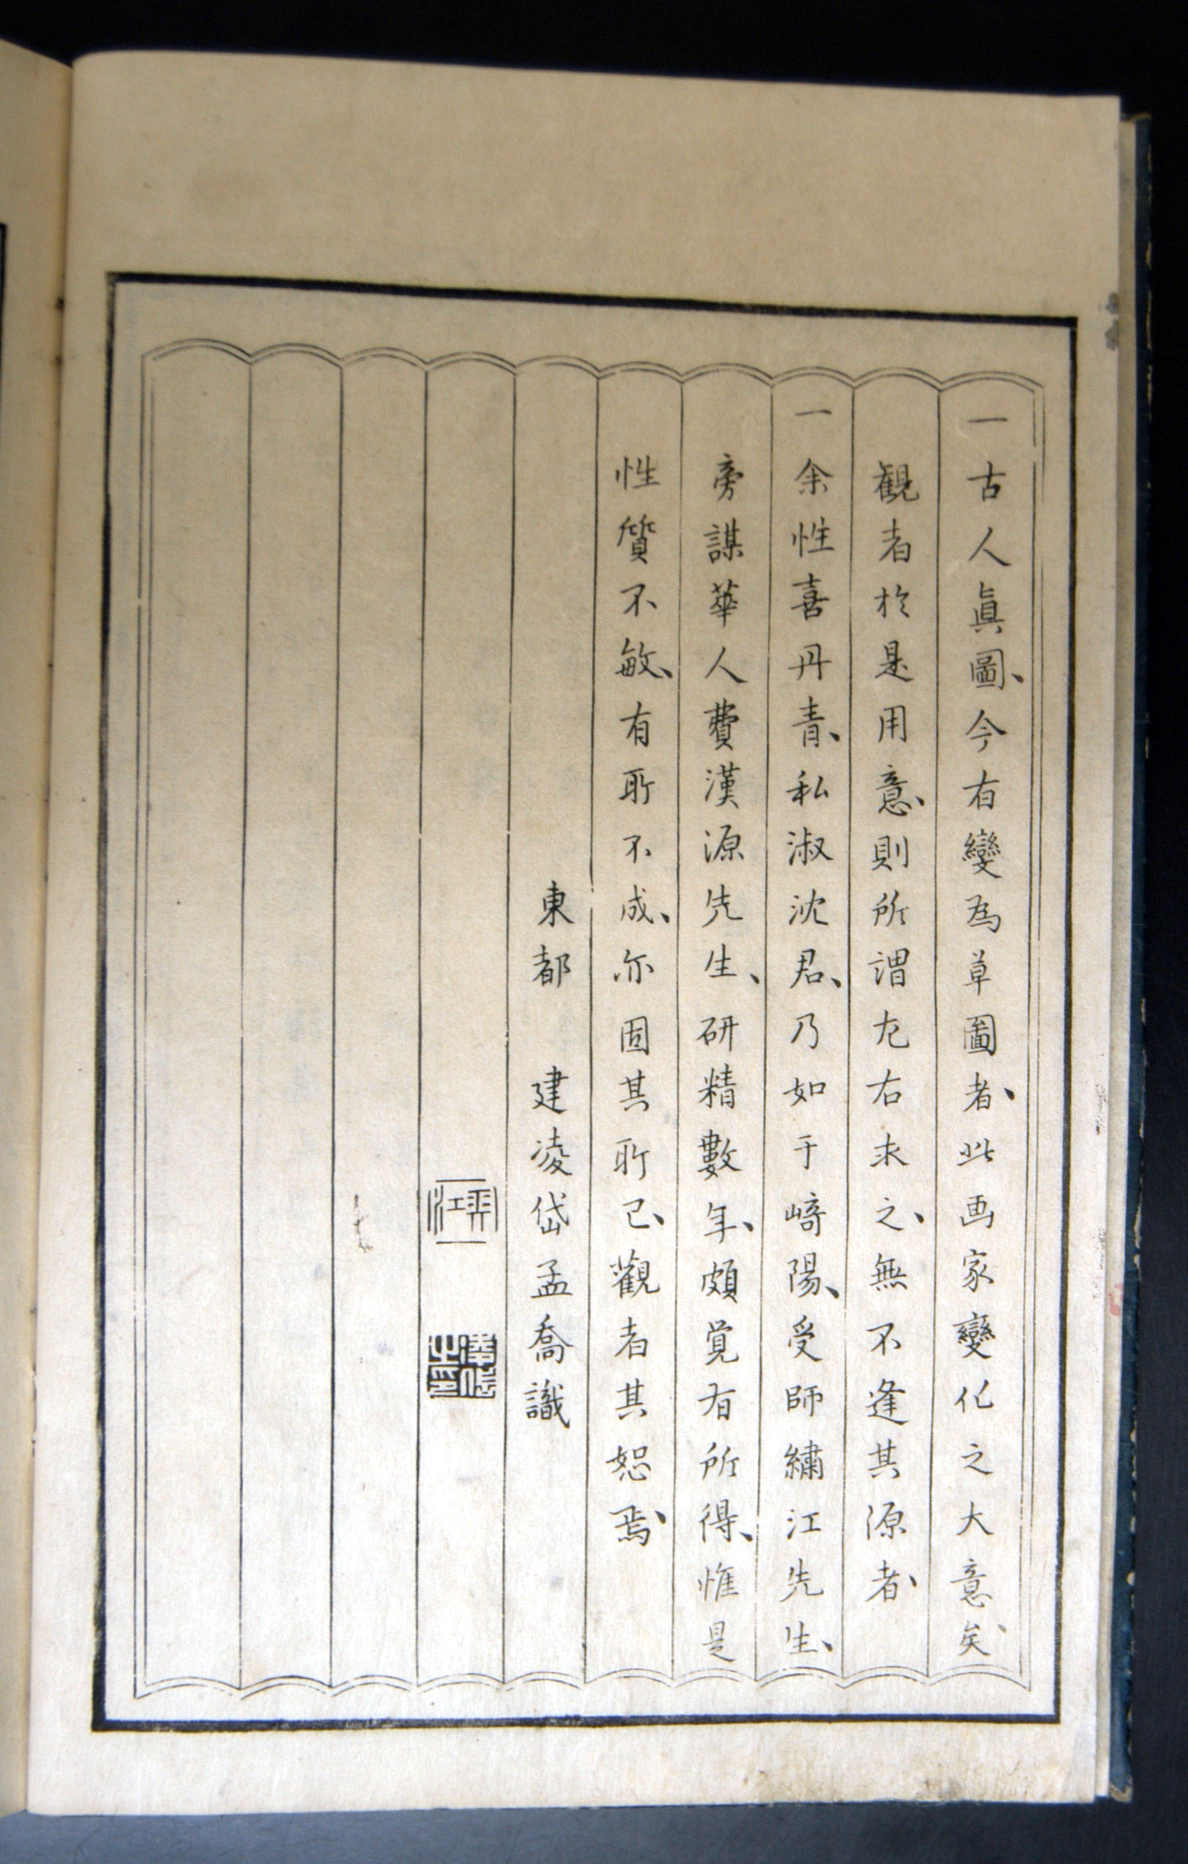 一古人眞圖、今有變為草圖者、此画家變化之大意矣、
觀者於是用意、則所謂左右求之、無不逢其源者、
一余性喜丹青、私淑沈君、乃如于﨑陽、受師繡江先生、
旁謀華人費漢源先生、研精數年、頗覚有所得、惟是
性質不敏、有所不成、亦固其所已、觀者其恕焉、
東都　建凌岱孟喬識